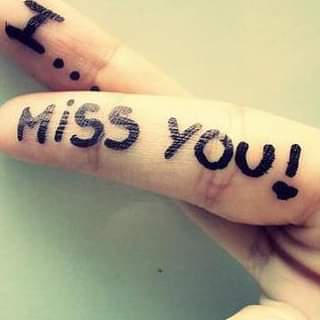 I...
MiSS YOU!